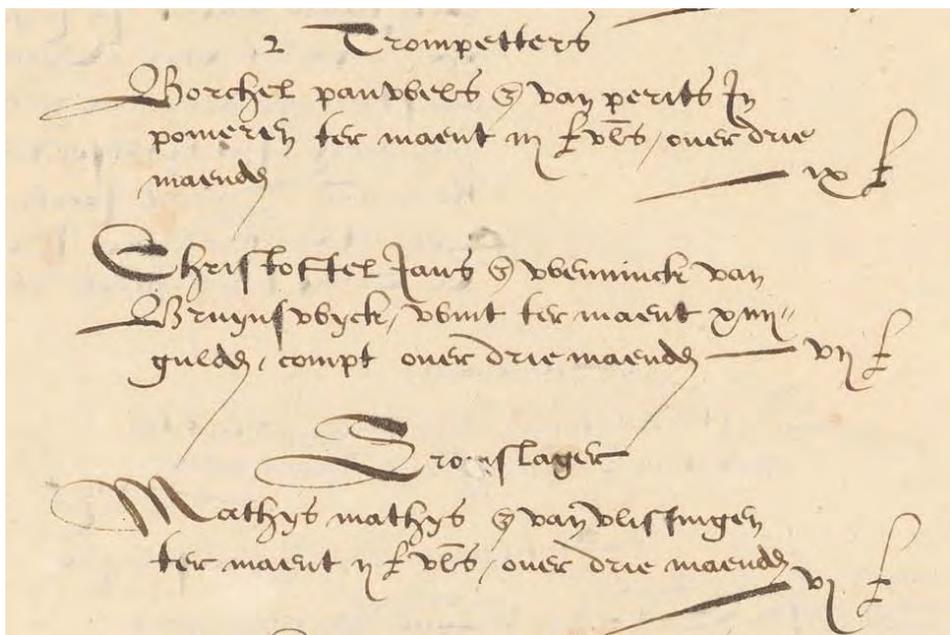 2 Trompetters
Borchel pauwels z van perits In
pomeren ter maent iij £ vls, over drie
maendē ix £
Christoffel Jans z wenninck van
Bruijnswijck, wint ter maent xiiij
guldē, compt over drie maendē vij £
Tromslager
Mathijs mathijs z van vlissingen
ter maent ij £ vls, over drie maendē vj £